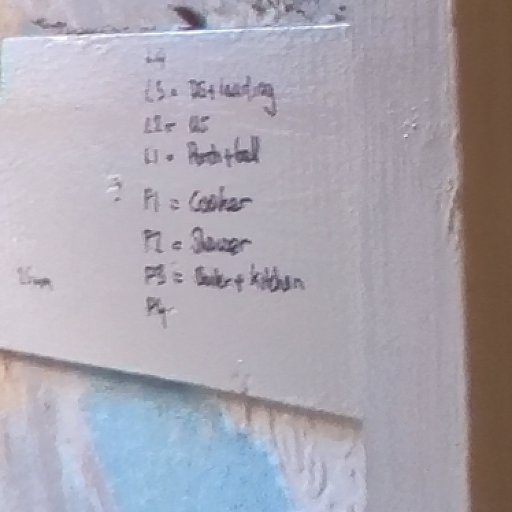 L4
L3 = DS + landing
L2 = US
L1 = Porch + hall
P1 = Cooker
P2 = Shower
P3 = + kitchen
P4